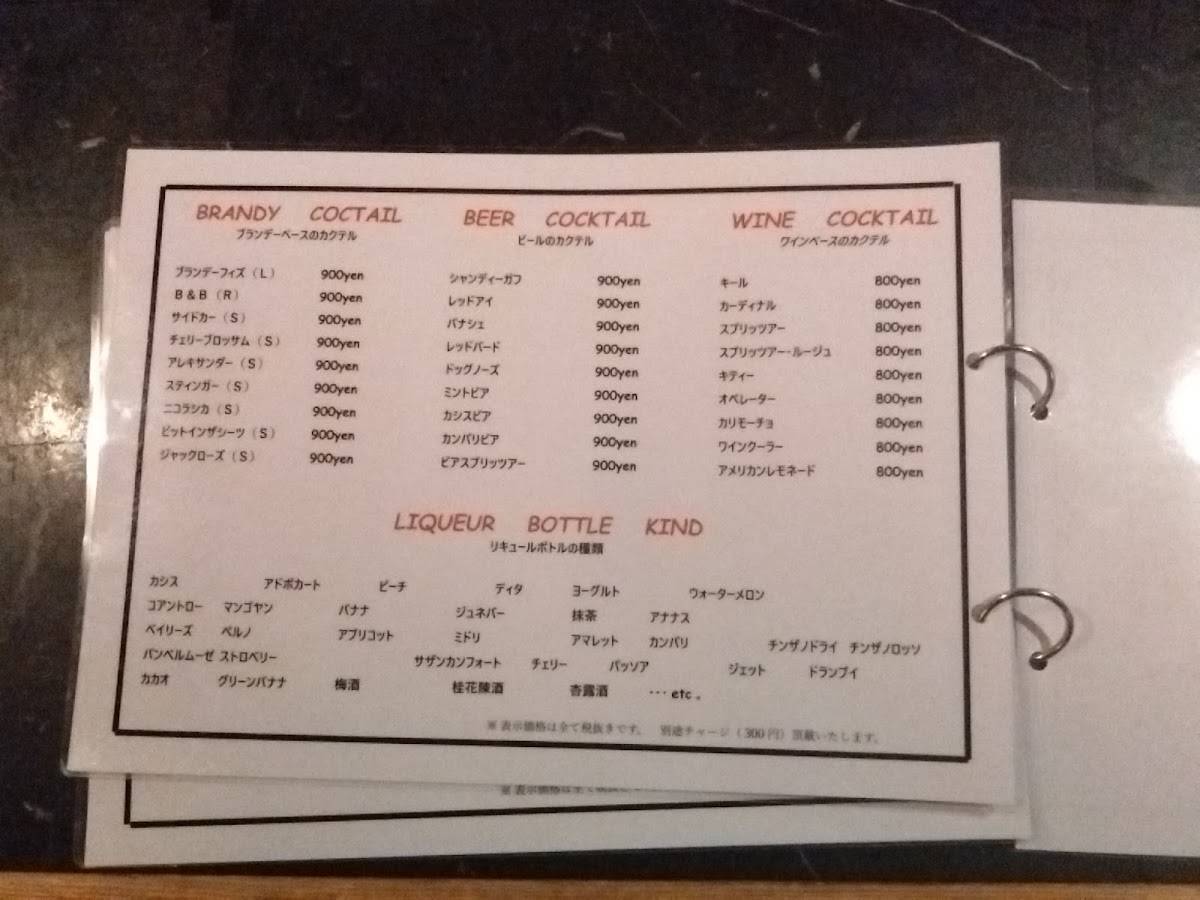 BRANDY COCTAIL
ブランデーベースのカクテル
ブランデーフィズ（L） 900yen
B＆B（R） 900yen
サイドカー（S） 900yen
チェリーブロッサム（S） 900yen
アレキサンダー（S） 900yen
スティンガー（S） 900yen
ニコラシカ（S） 900yen
ビットインザシーツ（S） 900yen
ジャックローズ（S） 900yen
BEER COCKTAIL
ビールのカクテル
シャンディーガフ 900yen
レッドアイ 900yen
パナシェ 900yen
レッドバード 900yen
ドッグノーズ 900yen
ミントビア 900yen
カシスビア 900yen
カンパリビア 900yen
ビアスプリッツアー 900yen
WINE COCKTAIL
ワインベースのカクテル
キール 800yen
カーディナル 800yen
スプリッツアー 800yen
スプリッツアー・ルージュ 800yen
キティー 800yen
オペレーター 800yen
カリモーチョ 800yen
ワインクーラー 800yen
アメリカンレモネード 800yen
LIQUEUR BOTTLE KIND
リキュールボトルの種類
カシス アドボカート ピーチ ディタ ヨーグルト ウォーターメロン
コアントロー マンゴヤン バナナ ジュネバー 抹茶 アナナス
ベイリーズ ペルノ アプリコット ミドリ アマレット カンパリ チンザノドライ チンザノロッソ
パンペルムーゼ ストロベリー サザンカンフォート チェリー パッソア ジェット ドランブイ
カカオ グリーンバナナ 梅酒 桂花陳酒 杏露酒 ･･･etc。
※表示価格は全て税抜きです。 別途チャージ（300円）頂戴いたします。
※表示価格は全て税抜き